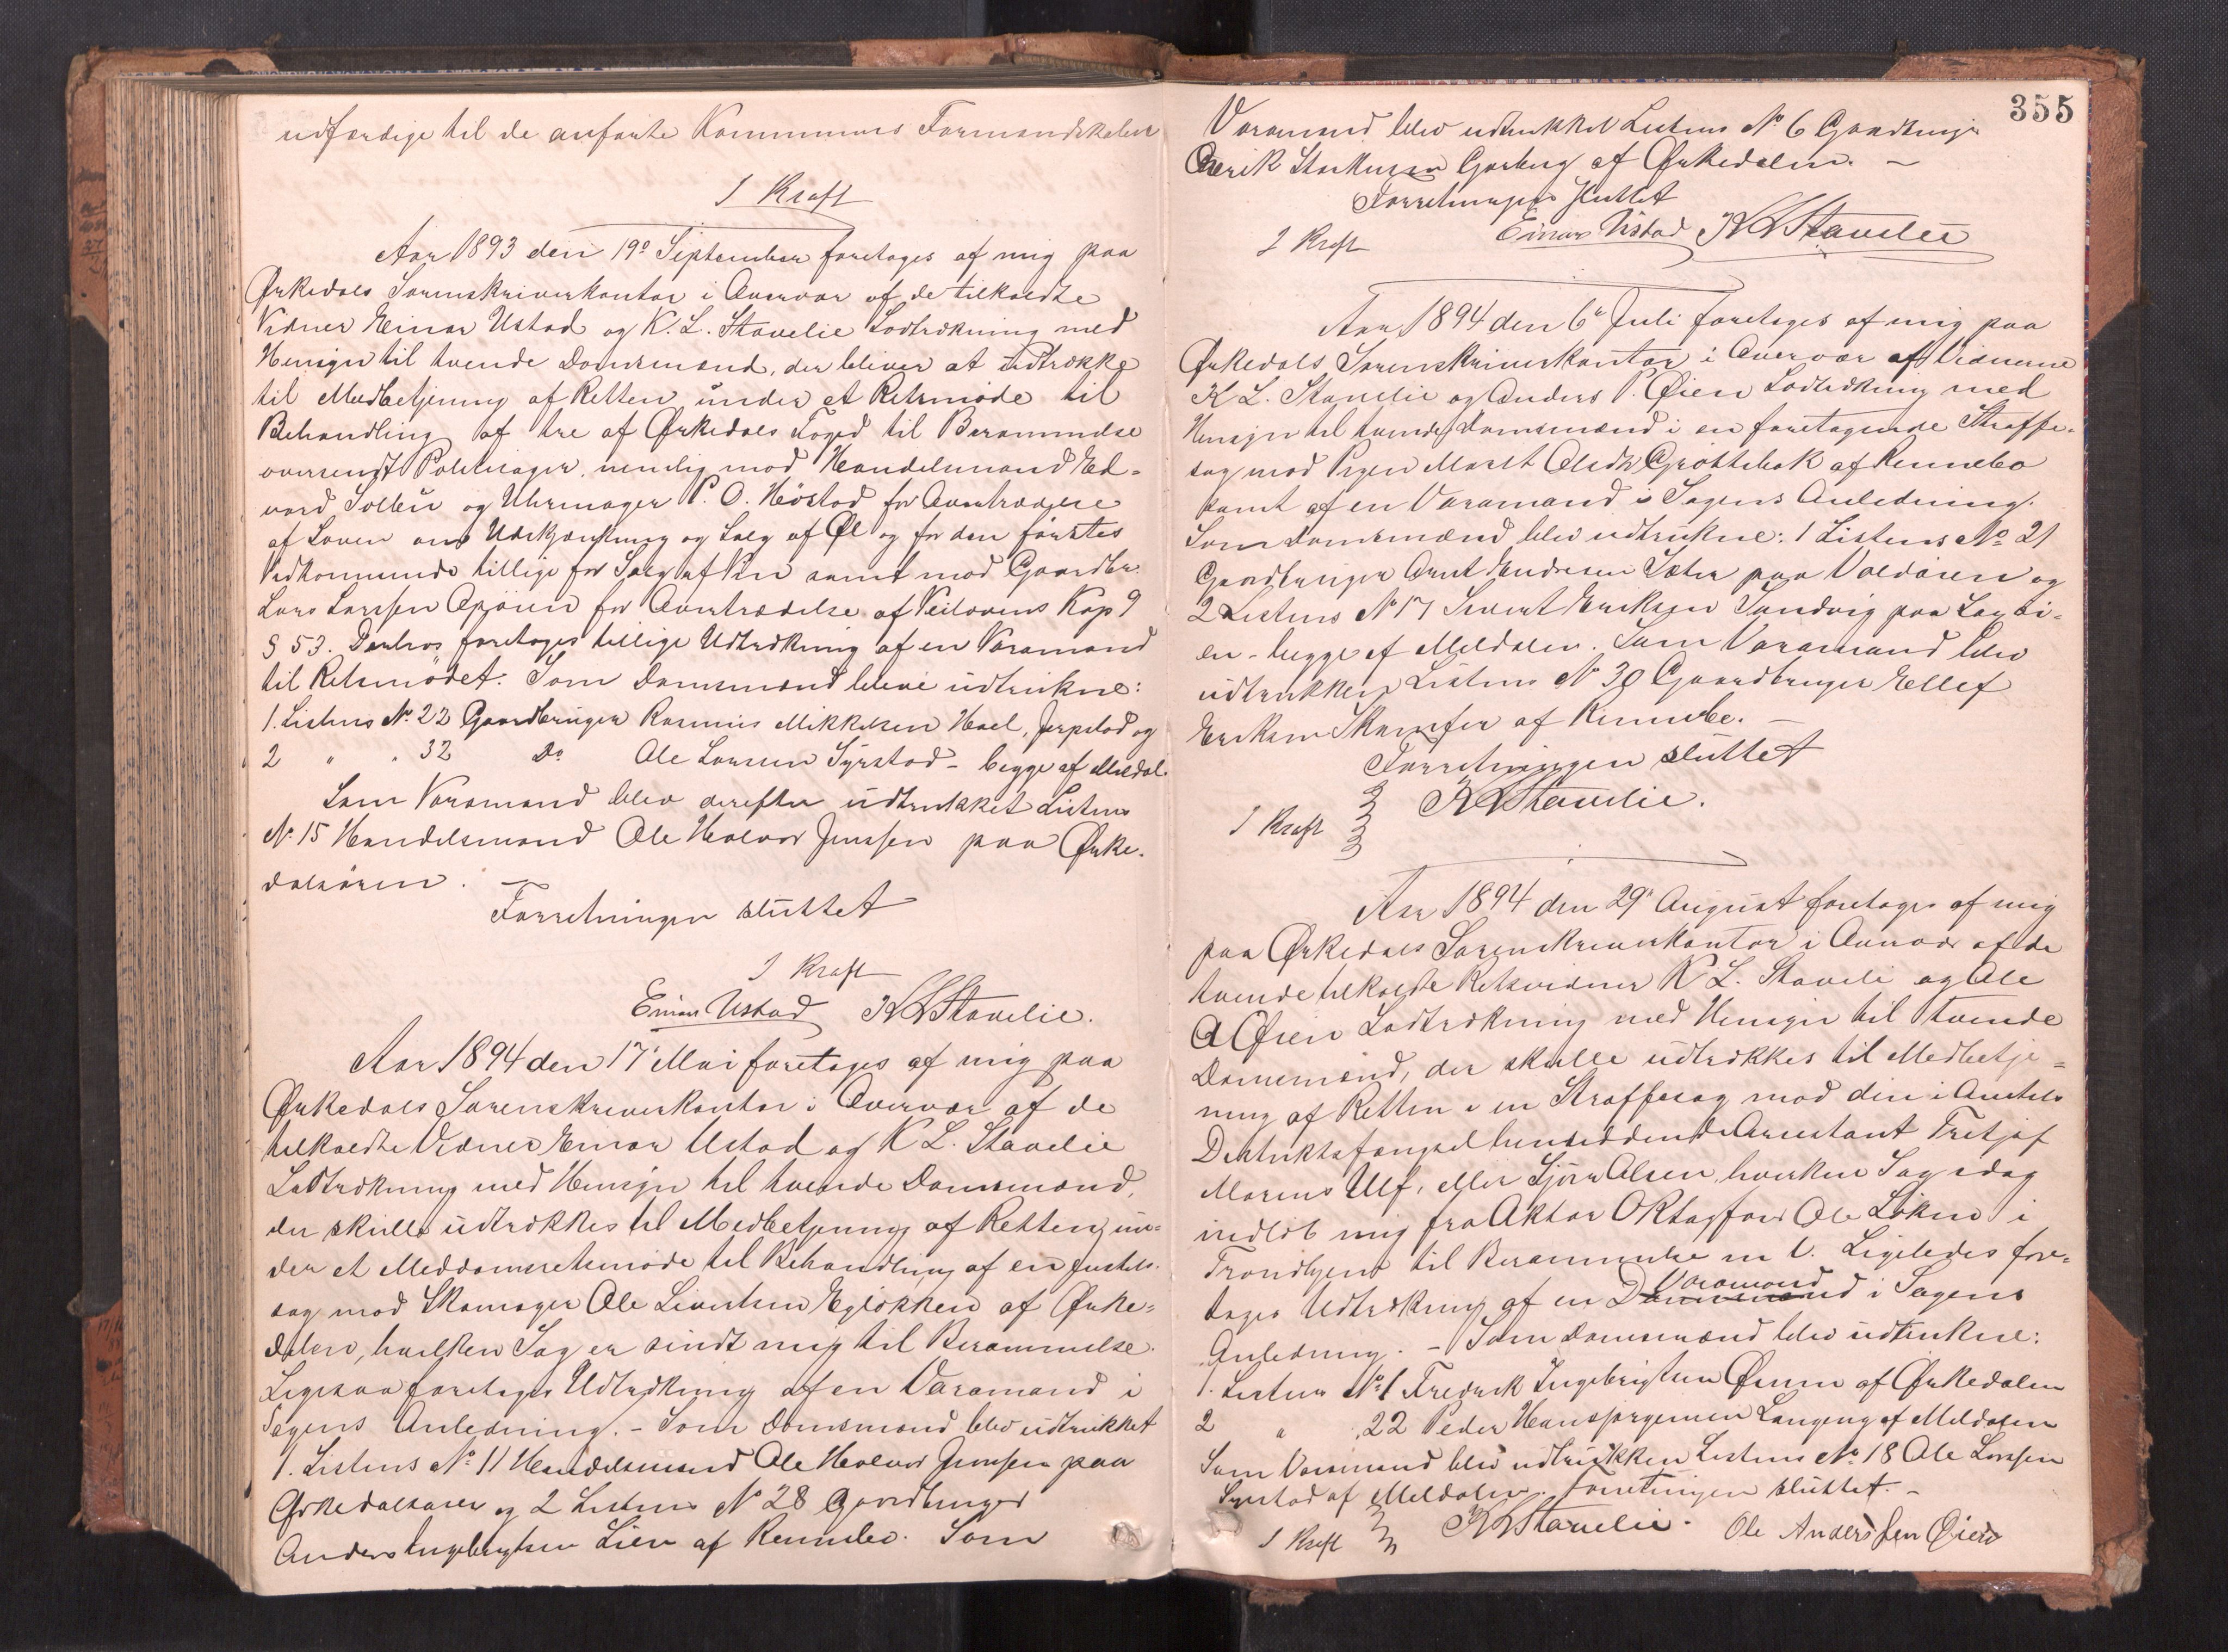 udfærdige til de anførte Kommuners Formandskaber
J Kraft
Aar 1893 den 19de September foretoges af mig paa
Ørkedals Sorenskriverkontor i Overvær af de tilkaldte
Vidner Einar Ustad og K. L. Stavelie Lodtrækning med
Hensyn til tvende Domsmænd, der bliver at udtrække
til Medbetjening af Retten under et Retsmøde til
Behandling af tre af Ørkedals Foged til Berammelse
oversendt Politisager, nemlig mod Handelsmand Ed-
vard Solbu og Uhrmager P. O. Høstad for Overtrædelse
af Loven om Udskjænkning og Salg af Øl og for den førstes
Vedkommende tillige for Salg af Vin samt mod Gaardbr.
Lars Larssen for Overtrædelse af Veilovens Kap 9
§ 53. Derhos foretoges tillige Udtrækning af en Varamand
til Retsmødet. Som Domsmænd bleve udtrukne:
1. Listens No. 22 Gaardbruger Rasmus Mikkelsen Hoel, Jerpstad og
2 " " 32 Do Ole Larssen Syrstad - begge af Meldal.
Som Varamand blev derefter udtrukket Listens
No. 15 Handelsmand Ole Halvor Jenssen paa Ørke-
dalsøren.
Forretningen sluttet
J Kraft
Einar Ustad K L Stavelie.
Aar 1894 den 17de Mai foretoges af mig paa
Ørkedals Sorenskriverkontor i Overvær af de
tilkaldte Vidner Einar Ustad og K L. Stavelie
Lodtrækning med Hensyn til tvende Domsmænd,
der skulle udtrækkes til Medbetjening af Retten un-
der et Meddomsretsmøde til Behandling af en Justits-
sag mod Skomager Ole Sivertsen Egløkken af Ørke-
dalen, hvilken Sag er sendt mig til Berammelse.
Ligesaa foretoges Udtrækning af en Varamand i
Sagens Anledning. - Som Domsmænd blev udtrukket
1. Listens No 11 Handelsmand Ole Halvor Jenssen paa
Ørkedalsøren og 2 Listens No 28 Gaardbruger
Anders Ingebrigtsen Lien af Rennebo. Som
355
Varamand blev udtrukket Listens No 6 Gaardbruger
Erik Garberg af Ørkedalen. -
Forretningen sluttet
J Kraft Einar Ustad K L Stavelie
Aar 1894 den 6te Juli foretoges af mig paa
Ørkedals Sorenskriverkontor i Overvær af Vidnerne
K L. Stavelie og Anders P. Øien Lodtrækning med
Hensyn til tvende Domsmænd i en foretagende Straffe-
sag mod Pigen Marit Olsdtr Grøttebak af Rennebo
samt af en Varamand i Sagens Anledning.
Som Domsmænd blev udtrukne: 1 Listens No 21
Gaardbruger Arnt Endresen paa Valdøien og
2 Listens No 17 Sivert Eriksen Sandvig paa
en - begge af Meldalen. Som Varamand blev
udtrukken Listens No 30 Gaardbruger Ellef
Eriksen Skamfer af Rennebo. -
Forretningen sluttet
J Kraft K L Stavelie.
Aar 1894 den 29de August foretoges af mig
paa Ørkedals Sorenskriverkontor i Overvær af de
tvende tilkaldte Retsvidner K L. Staveli og Ole
A Øien Lodtrækning med Hensyn til tvende
Domsmænd, der skulle udtrækkes til Medbetje-
ning af Retten i en Straffesag mod den i Amtets
Distriktsfængsel hensiddende Arrestant Fritjof
Marius Ulf, eller Olsen, hvilken Sag idag
indløb mig fra Aktor O Ole Løken i
Trondhjem til Berammelse m V. Ligeledes fore-
toges Udtrækning af en Domsmand Varamand i Sagens
Anledning. - Som Domsmænd blev udtrukne:
1. Listens No. 1 Fredrik Ingebrigtsen af Ørkedalen
2 " 22 Peder Hansjørgensen Langeng af Meldalen
Som Varamand blev udtrukken Listens No. 18 Ole Larssen
Syrstad af Meldalen. Forretningen sluttet. -
J Kraft K L Stavelie. Ole Anderssen Øien